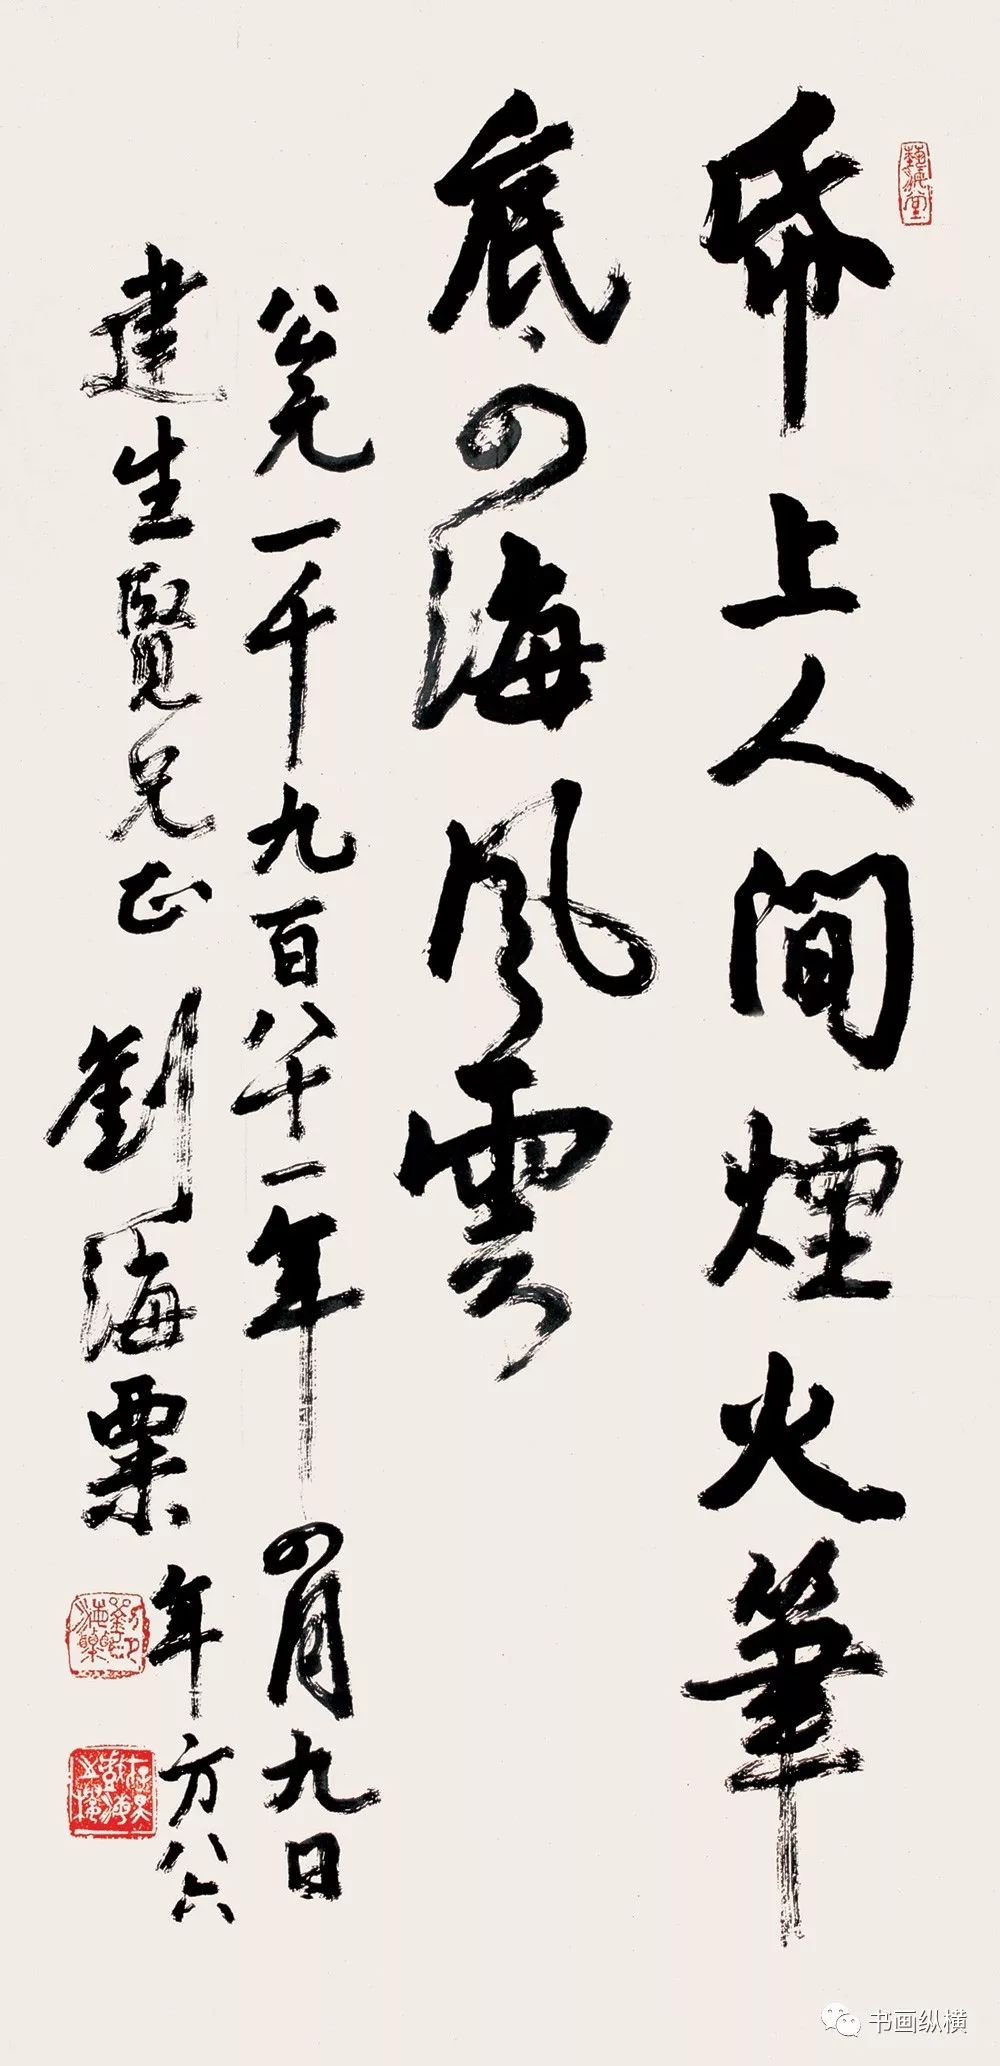 藝海堂
帋上人間煙火筆
底四海風雲
公元一千九百八十一年四月九日
建生賢兄正 劉海粟 年方八六
劉海粟印
书画纵横